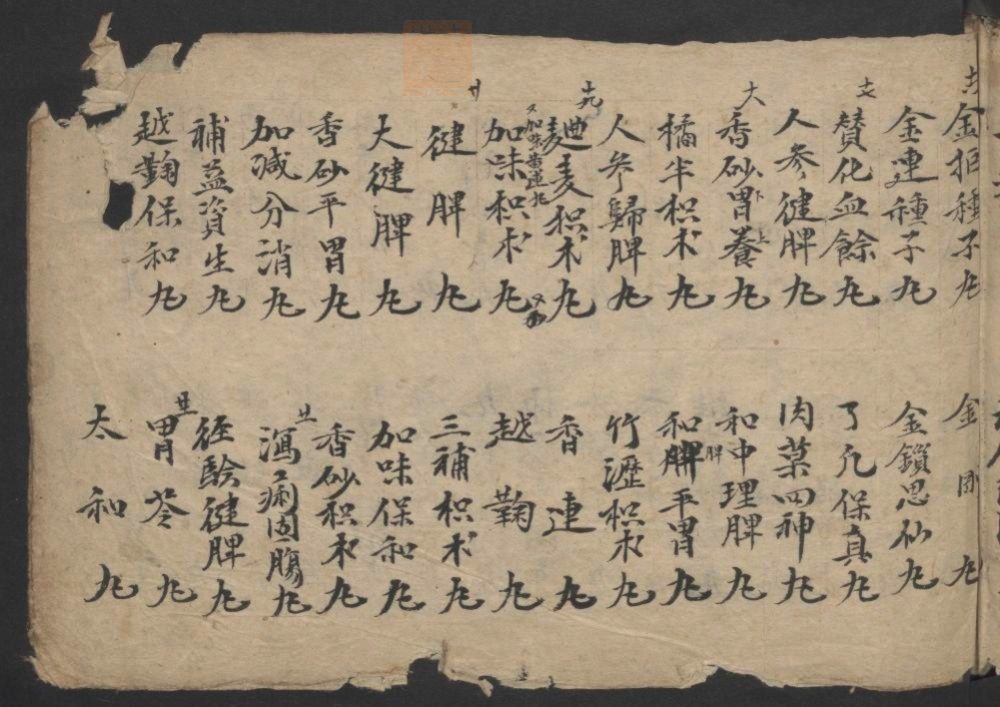 金𢪛種子丸
金連種子丸
贊化血餘丸
人參健脾丸
香砂胃養丸
橘半枳朮丸
人參歸脾丸
麯麦枳朮丸
加味枳朮丸
健脾丸
大健脾丸
香砂平胃丸
加減分消丸
補益資生丸
越鞠保和丸
金丸
金鎖思仙丸
了凡保真丸
肉菓四神丸
和中理脾丸
和脾平胃丸
竹瀝枳朮丸
香連丸
越鞠丸
三補枳朮丸
加味保和丸
香砂枳朮丸
瀉痢固腸丸
經驗健脾丸
胃苓丸
太和丸